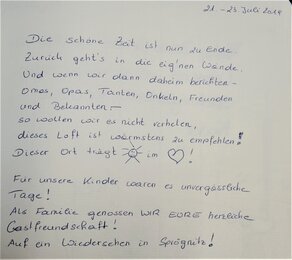 21. - 23. Juli 2014
Die schöne Zeit ist nun zu Ende.
Zurück geht's in die eig'nen Wände.
Und wenn wir dann daheim berichten -
Omas, Opas, Tanten, Onkeln, Freunden
und Bekannten -
so wollen wir es nicht verhehlen,
dieses Loft ist wärmstens zu empfehlen!
Dieser Ort trägt im !
Für unsere Kinder waren es unvergessliche
Tage!
Als Familie genossen WIR EURE herzliche
Gastfreundschaft!
Auf ein Wiedersehen in Sprögnitz!